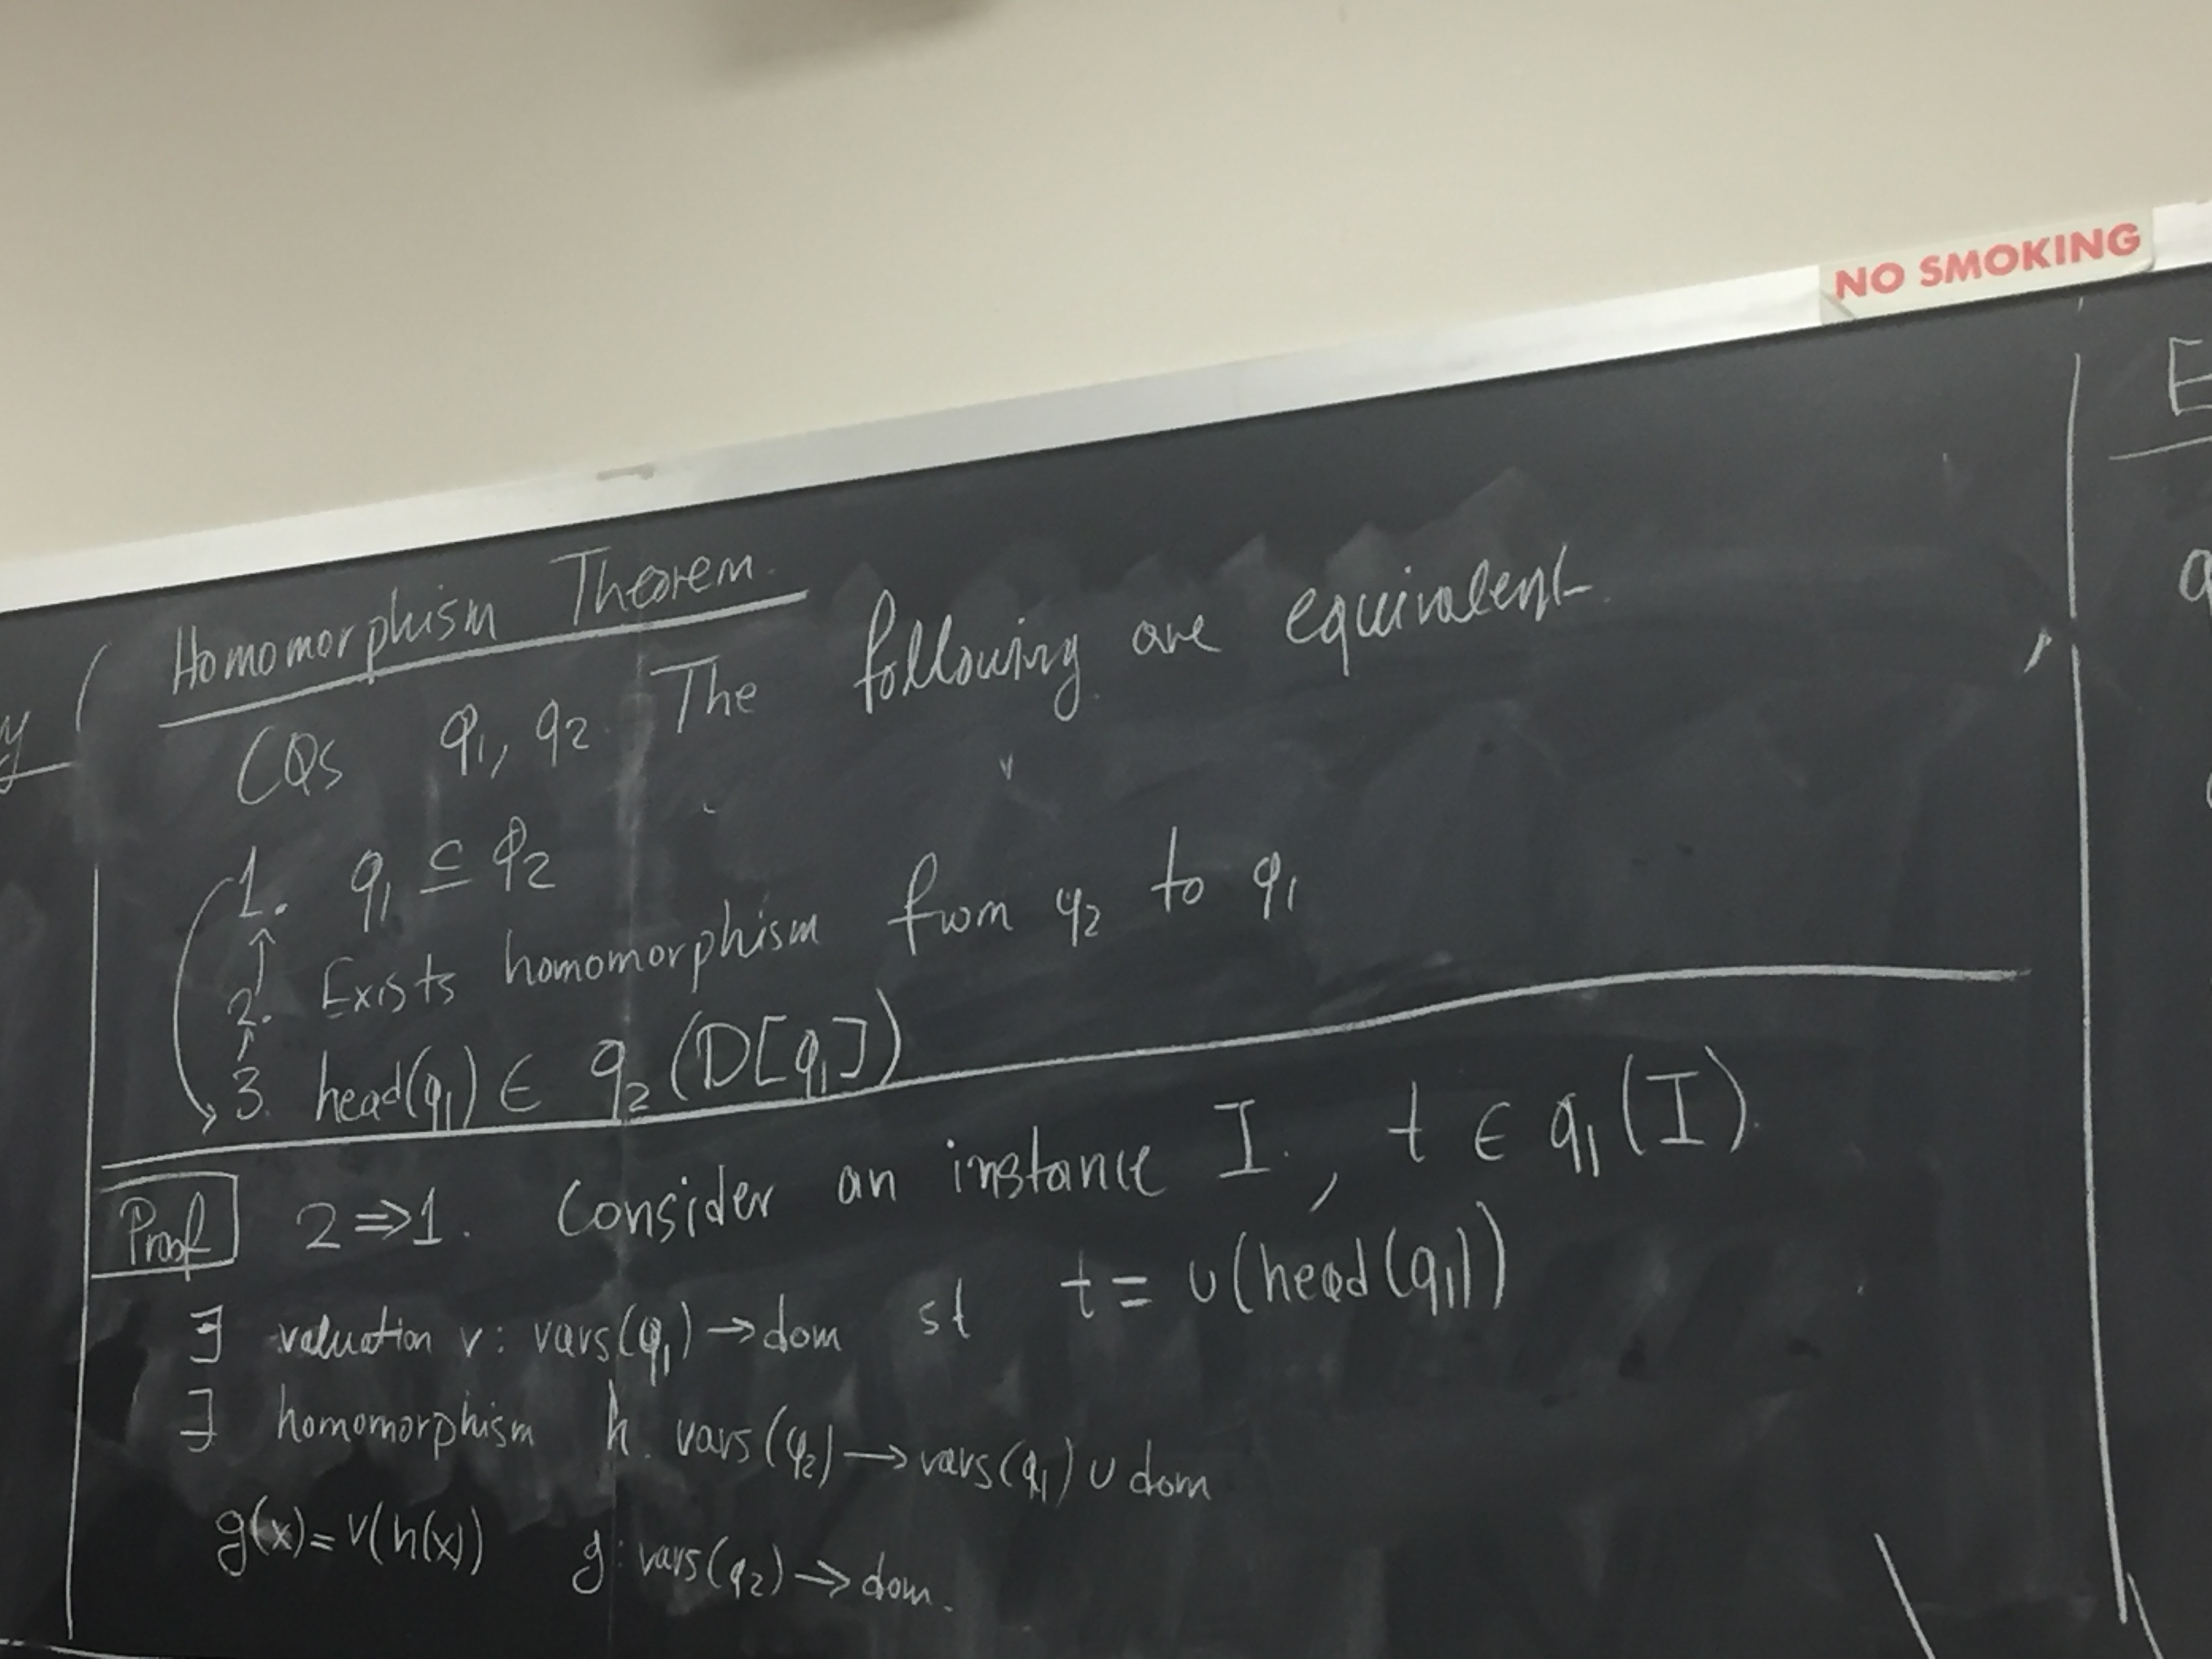 NO SMOKING
Homomorphism Theorem.
CQs q₁, q₂. The following are equivalent.
1. q₁ ⊆ q₂
2. Exists homomorphism from q₂ to q₁
3. head(q₁) ∈ q₂(D[q₁])
Proof 2⇒1. Consider an instance I, t ∈ q₁(I).
∃ valuation v: vars(q₁) → dom st t = v(head(q₁))
∃ homomorphism h: vars(q₂) → vars(q₁) ∪ dom
g(x) = v(h(x)) g: vars(q₂) → dom.